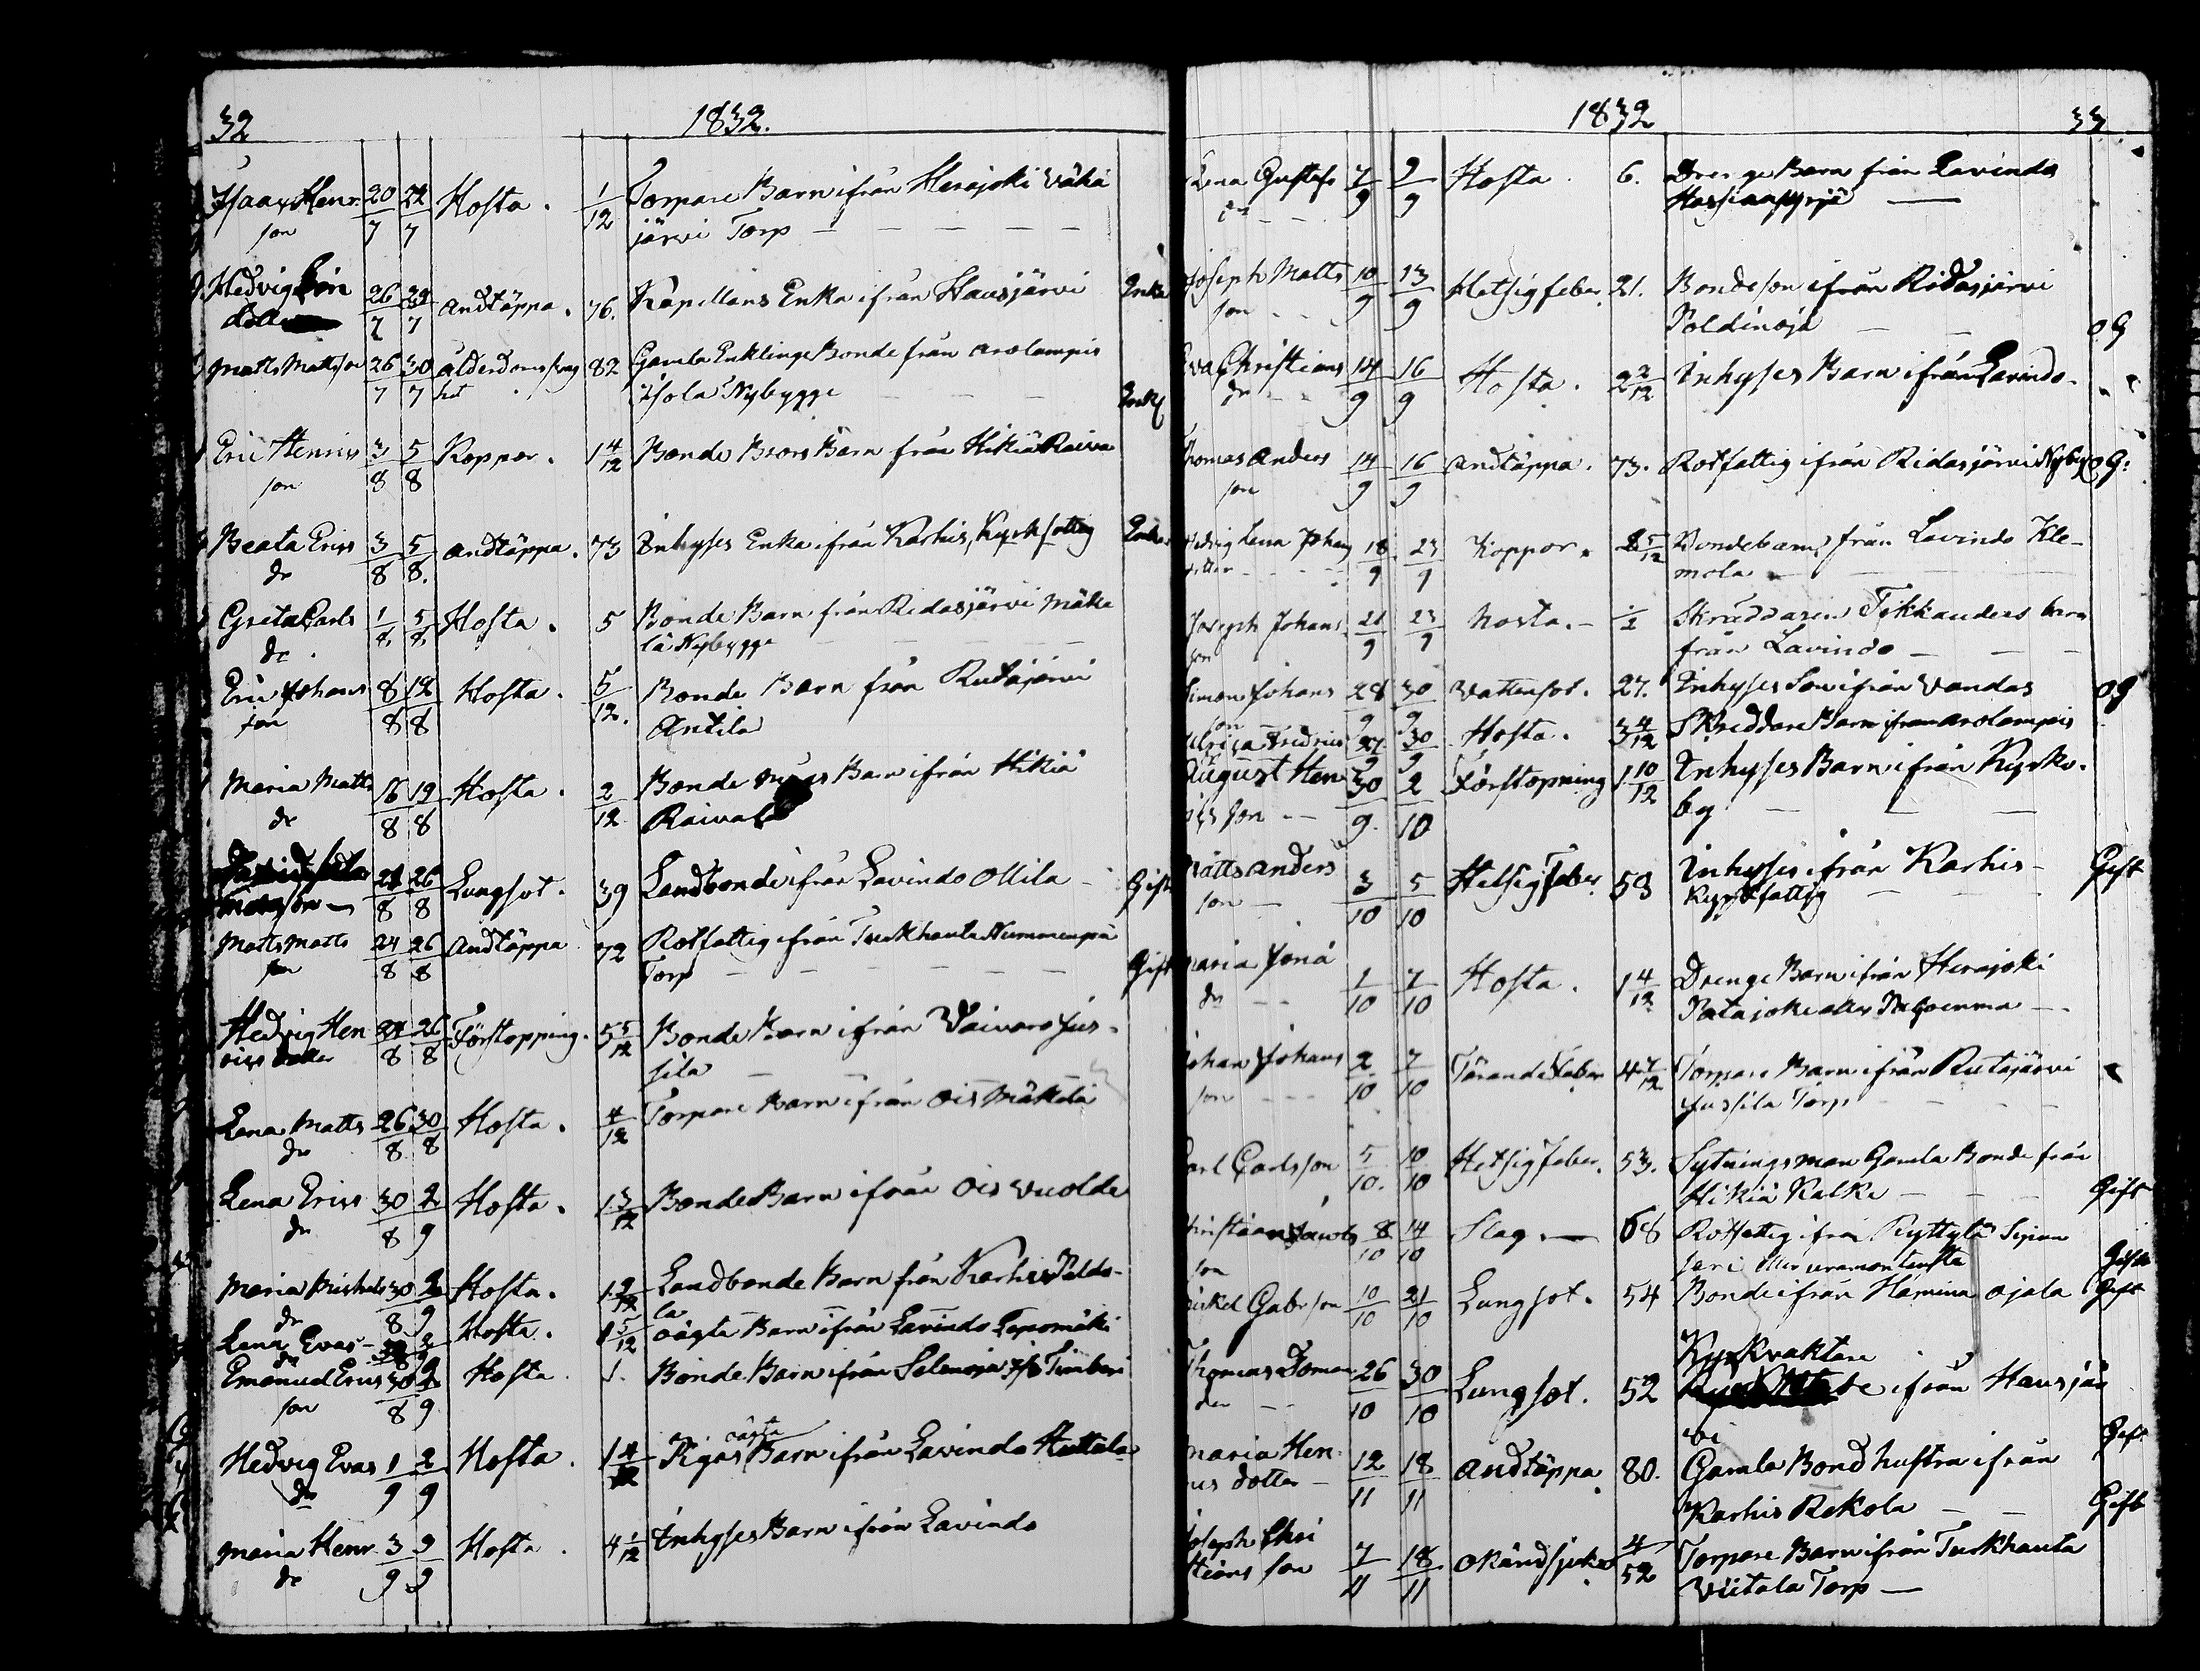 32
1832.
Isaac Henr. 20 22 Hosta. 1/12 Torpare Barn ifrån Herajoki Vähä
son 7 7 järvi Torp
Hedvig 26 29 andtäppa. 76. Kapellans Enka ifrån Hausjärvi Enka
7 7
Matts Mattsson 26 30 ålderdoms 82 Gamla Enklinge Bonde från arolampis
7 7 het Isola Nybygge Enkl
Eric Henrics 3 5 Koppor. 1 4/12 Bonde Barn från Hikiä Raiva
son 8 8
Beata Erics 3 5 andtäppa. 73 Inhyses Enka ifrån Karhis, Kyrkfattig Enka
dr 8 8.
Greta Carls 1 5 Hosta. 5 Bonde Barn från Ridasjärvi Mäke
dr 8 8 lä Nybygge
Eric Johans 8 12 Hosta. 5/12. Bonde Barn från Rutajärvi
son 8 8 Antila
Maria Matts 16 19 Hosta. 2/12 Bonde Barn ifrån Hikiä
dr 8 8 Raivala
21 26 Lungsot. 39 Landbonde ifrån Lavindo Ollila Gift
8 8
Matts Matts 24 26 andtäppa 72 Rotfattig ifrån Turkhauta Nummenpää
son 8 8 Torp Gift
Hedvig Hen 24 26 Förstoppning. 5 5/12 Bonde Barn ifrån Vaivaro Jus-
rics dotter 8 8 sila
Lena Matts 26 30 Hosta. 4/12 Torpare Barn ifrån Ois Mäkelä
dr 8 8
Lena Erics 30 2 Hosta. 1 3/12 Bonde Barn ifrån Ois Vuolde
dr 8 9
Maria Michels 30 2 Hosta. 1 2/12 Landbonde Barn från Karhis Paldo-
dr 8 9 la
Lena Evas- Hosta. 1 5/12 oägta Barn ifrån Lavindo Lepomäki
dr
Emanuel Erics 30 2 Hosta. 1. Bonde Barn ifrån Selänoja
son 8 9
Hedvig Evas 1 2 Hosta. 1 4/12 Pigas oägta Barn ifrån Lavindo Huttala
dr 9 9
Maria Henr. 3 9 Hosta. 4 1/12 Inhyses Barn ifrån Lavindo
dr 9 9
1832
33
Lena Gustafs 7 9 Hosta. 6. Drenge Barn från Lavindo
dr 9 9
Joseph Matts 10 13 Hetsigfeber 21. Bondeson ifrån Ridasjärvi
son 9 9 Poldinoja O G
Eva Christians 14 16 Hosta. 2 2/12 Inhyses Barn ifrån Lavindo.
dr 9 9
Thomas Anders 14 16 andtäppa. 73. Rotfattig ifrån Ridasjärvi Nyby O G:
son 9 9
Hedvig Lena Johans 18 23 Koppor. 5/12 Bondebarn från Lavindo Kle-
dotter 9 9 mola
Joseph Johans 21 23 hosta. 1/2 Skräddaren Tikkanders barn
son 9 9 från Lavindo
Simon Johans 28 30 Vattusot. 27. Inhyses Son ifrån Vandas O G
son 9 9
Ulrica Fredrics 27 30 Hosta. 3 4/12 Skreddare Barn ifrån arolampis
9 9
August Hen 30 2 Förstopning 1 10/12 Inhyses Barn ifrån Kyrko.
rics son 9. 10 by
Matts Anders 3 5 Hetsigfeber 53 Inhyses ifrån Karhis Gift
son 10 10 Kyrkfattig
Maria Jona 1 7 Hosta. 1 4/12 Drenge Barn ifrån Herajoki
dr 10 10 Patajoki
Johan Johans 2 7 Tärande feber 4 7/12 Torpare Barn ifrån Rutajärvi
son 10 10 Jussila Torp
Carl Carlsson 5 10 Hetsigfeber. 53. Sytningsman Gamla Bonde från
10. 10 Hikiä Kalke Gift
Christian Jacobs 8 14 Slag. 68 Rotfattig ifrån Ryttylä
son 10 10 Gift
Mickel Gabr. son 10 21 Lungsot. 54 Bonde ifrån Hamina Ojala Gift
10 10
Thomas Toma 26 30 Lungsot. 52 Kyrkvaktare
10 10 ifrån Hausjär
vi Gift
Maria Hen 12 18 andtäppa. 80. Gamla Bondhustru ifrån
rics dotter 11 11 Karhis Rekola Gift
Joseph Chri 7 18 okänd sjukd 4/52 Torpare Barn ifrån Turkhauta
stians son 11 11 Viitala Torp